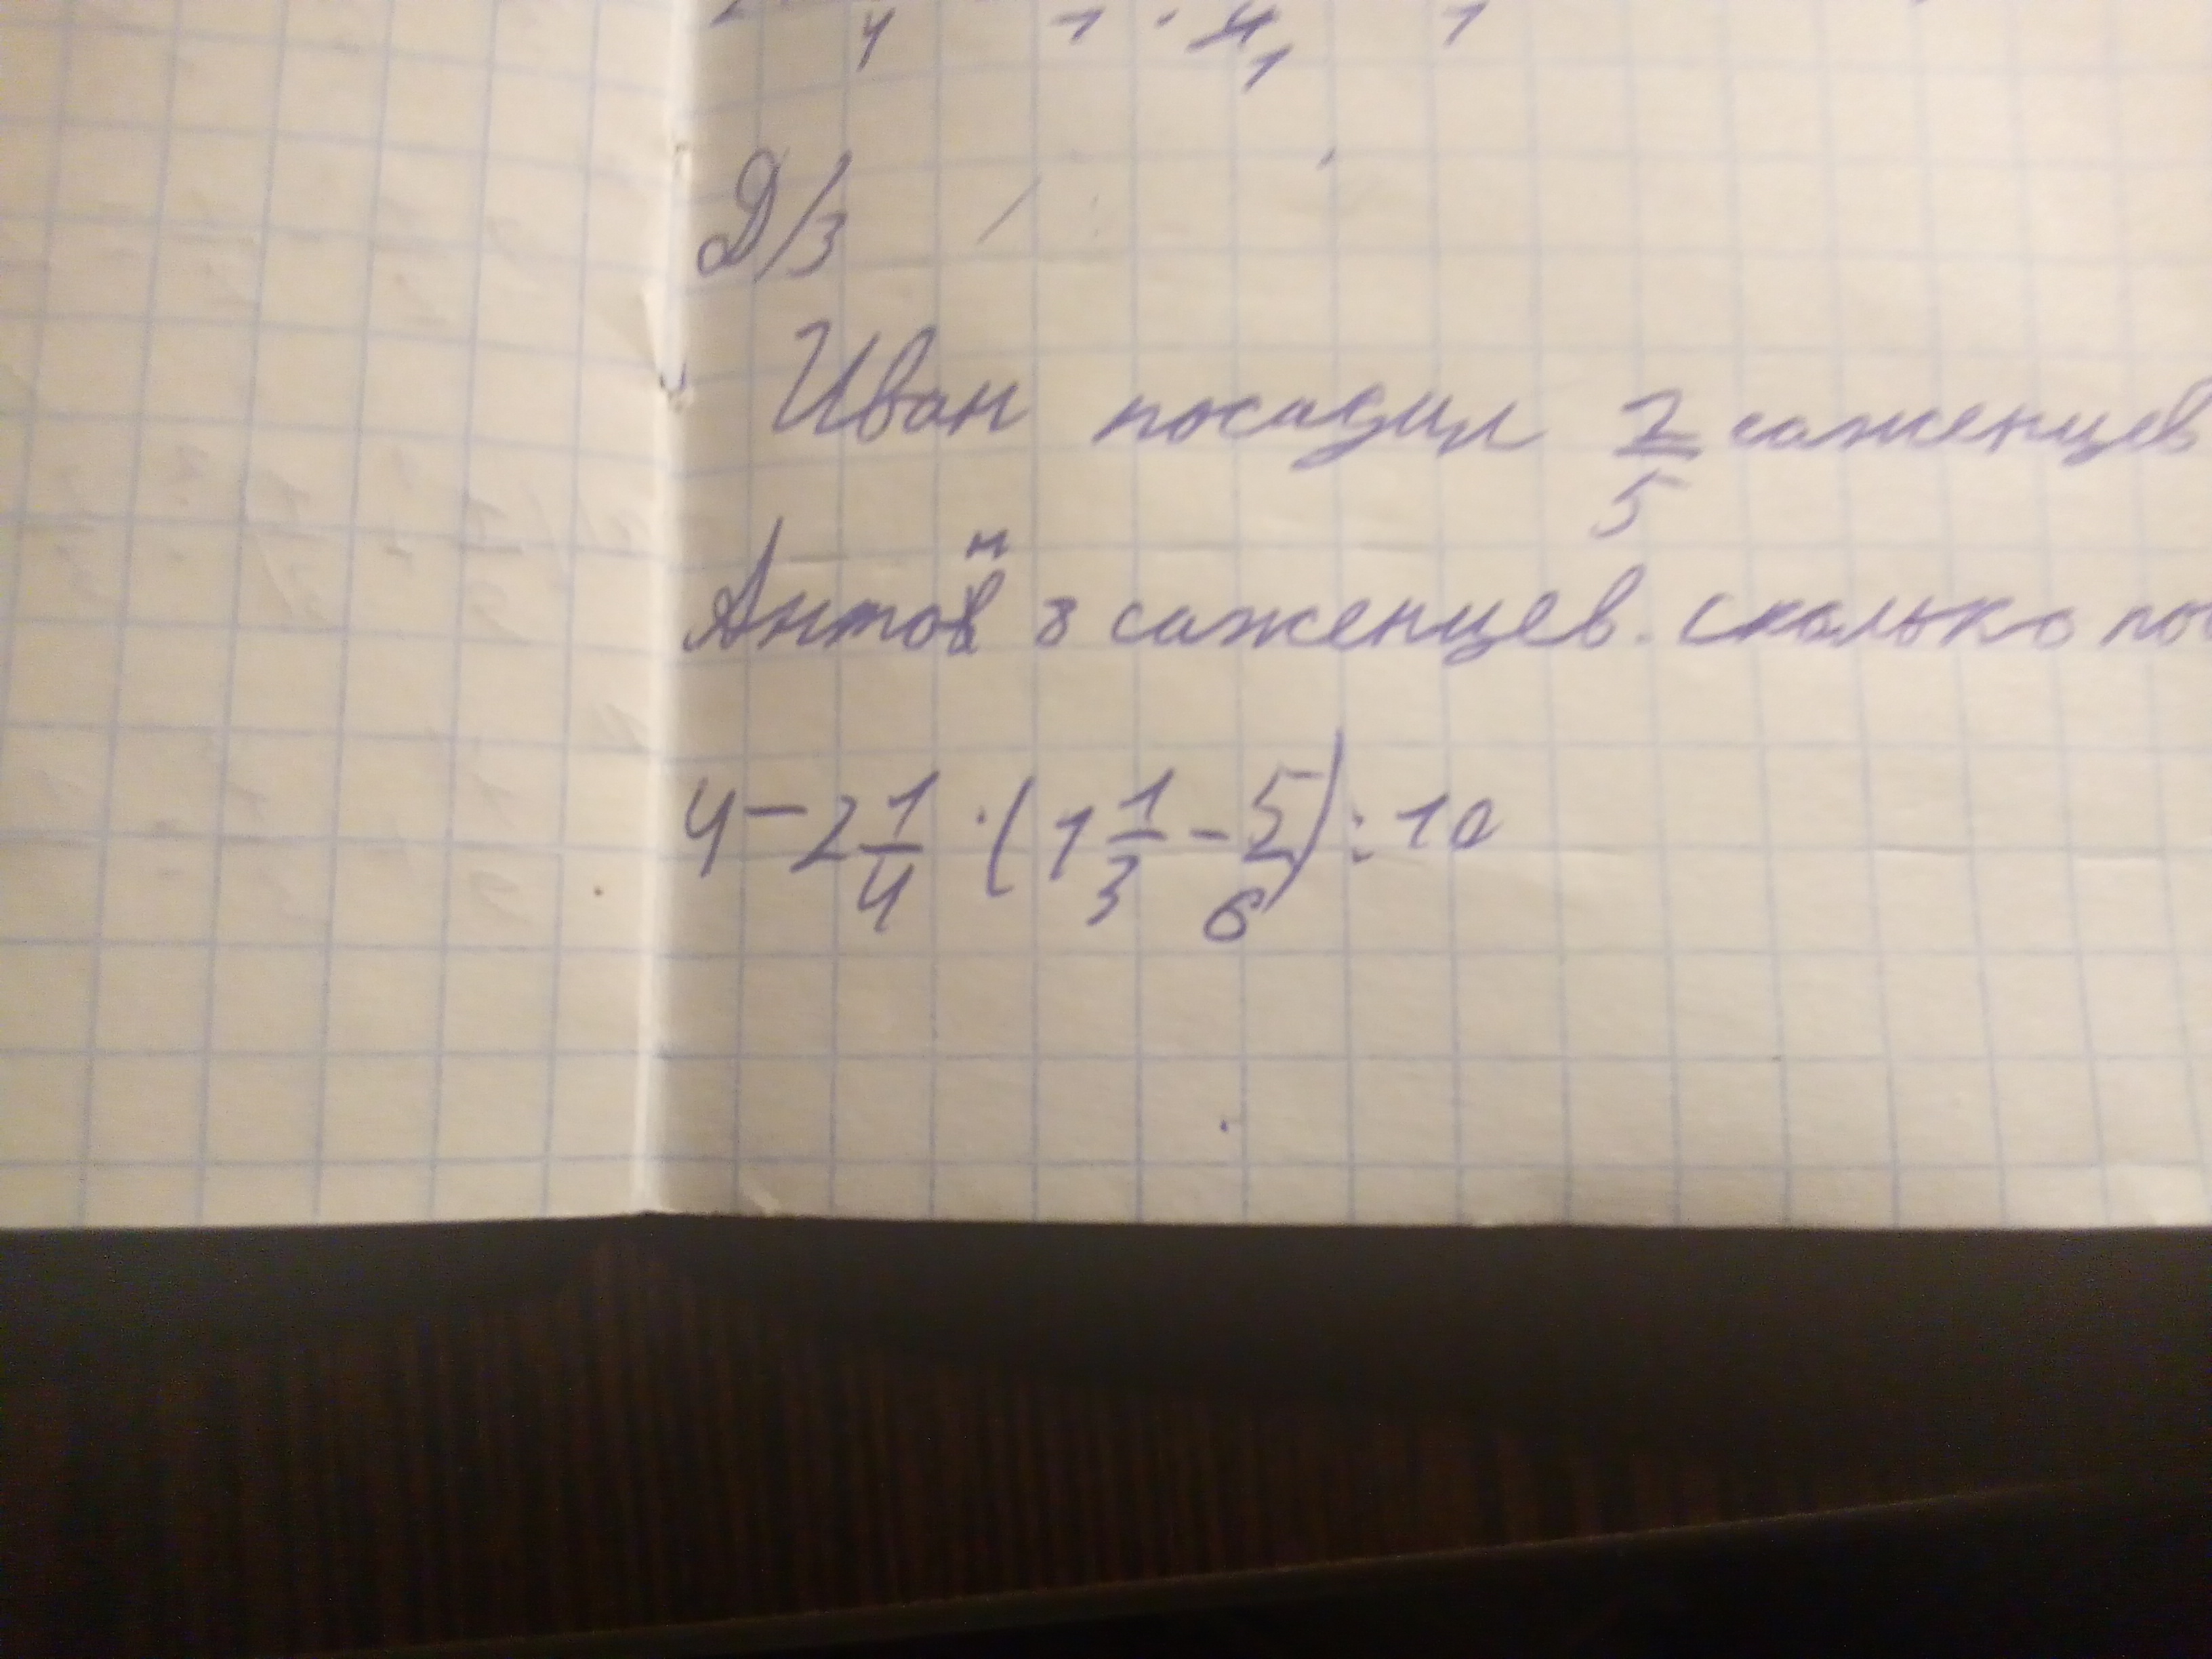 Д/з
Иван посадил 2/5 саженцев
Антон 8 саженцев. сколько пос
4 - 2 1/4 · (1 1/3 - 5/6) : 10